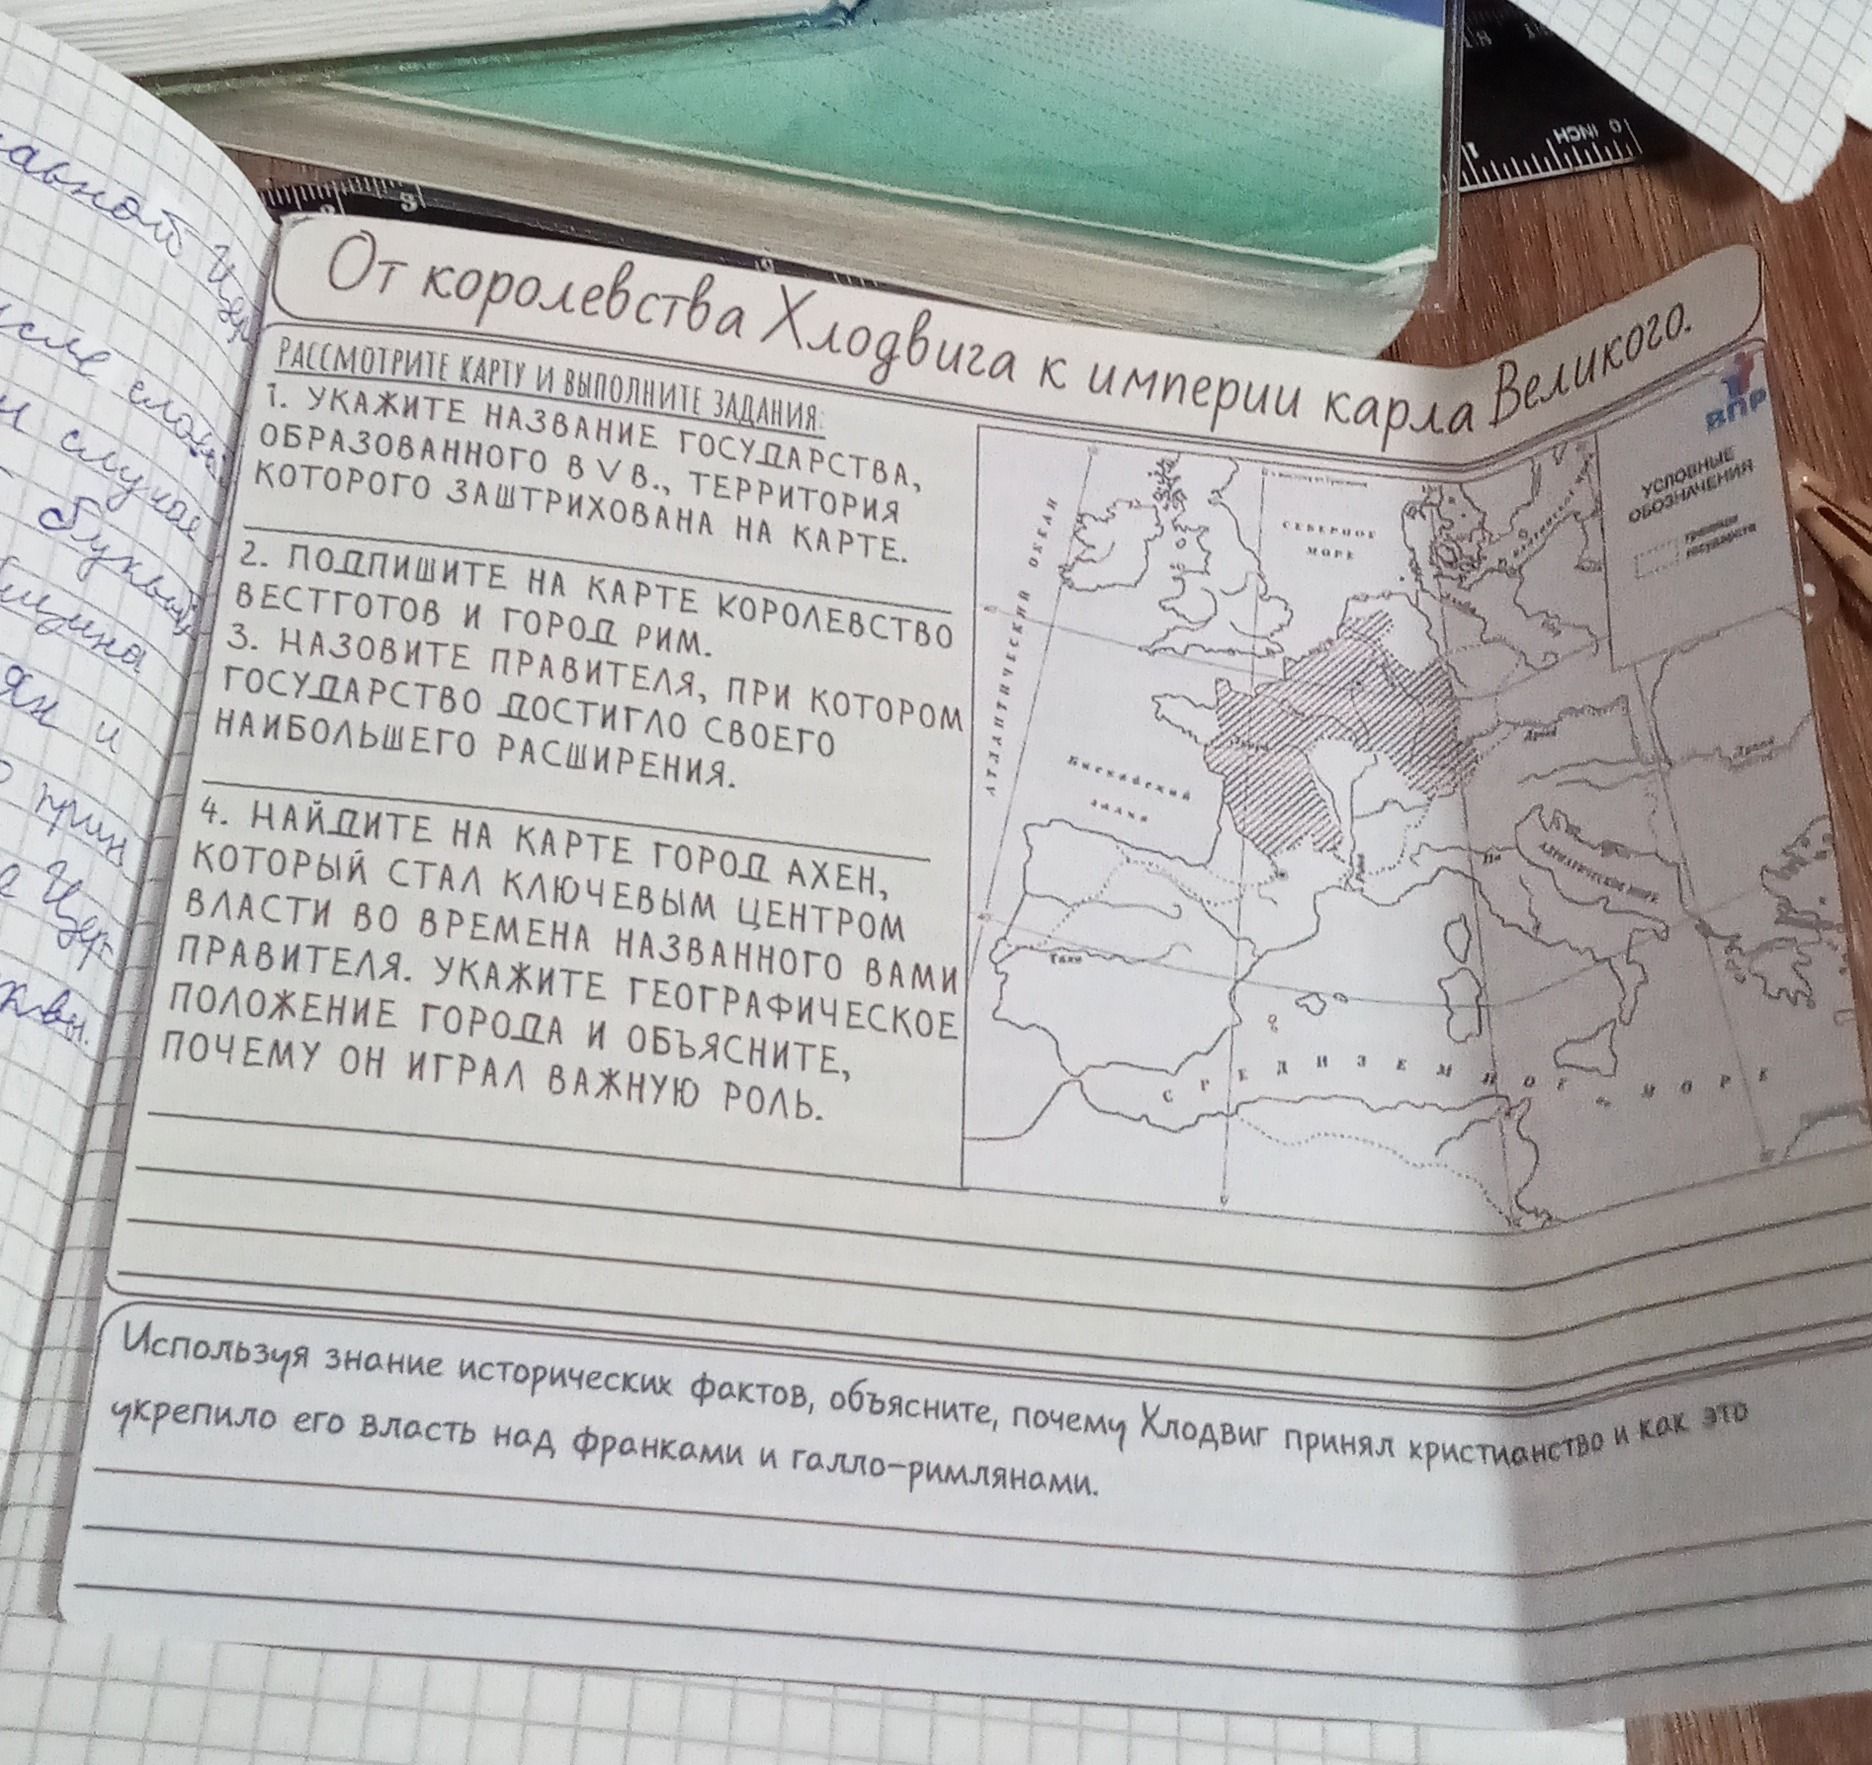 От королевства Хлодвига к империи карла Великого.
РАССМОТРИТЕ КАРТУ И ВЫПОЛНИТЕ ЗАДАНИЯ:
1. УКАЖИТЕ НАЗВАНИЕ ГОСУДАРСТВА,
ОБРАЗОВАННОГО В V В., ТЕРРИТОРИЯ
КОТОРОГО ЗАШТРИХОВАНА НА КАРТЕ.
2. ПОДПИШИТЕ НА КАРТЕ КОРОЛЕВСТВО
ВЕСТГОТОВ И ГОРОД РИМ.
3. НАЗОВИТЕ ПРАВИТЕЛЯ, ПРИ КОТОРОМ
ГОСУДАРСТВО ДОСТИГЛО СВОЕГО
НАИБОЛЬШЕГО РАСШИРЕНИЯ.
4. НАЙДИТЕ НА КАРТЕ ГОРОД АХЕН,
КОТОРЫЙ СТАЛ КЛЮЧЕВЫМ ЦЕНТРОМ
ВЛАСТИ ВО ВРЕМЕНА НАЗВАННОГО ВАМИ
ПРАВИТЕЛЯ. УКАЖИТЕ ГЕОГРАФИЧЕСКОЕ
ПОЛОЖЕНИЕ ГОРОДА И ОБЪЯСНИТЕ,
ПОЧЕМУ ОН ИГРАЛ ВАЖНУЮ РОЛЬ.
ВПР
УСЛОВНЫЕ
ОБОЗНАЧЕНИЯ
границы
государств
АТЛАНТИЧЕСКИЙ ОКЕАН
СЕВЕРНОЕ
МОРЕ
Бискайский
залив
Тахо
По
АДРИАТИЧЕСКОЕ МОРЕ
СРЕДИЗЕМНОЕ МОРЕ
Используя знание исторических фактов, объясните, почему Хлодвиг принял христианство и как это
укрепило его власть над франками и галло-римлянами.
INCH
0
1